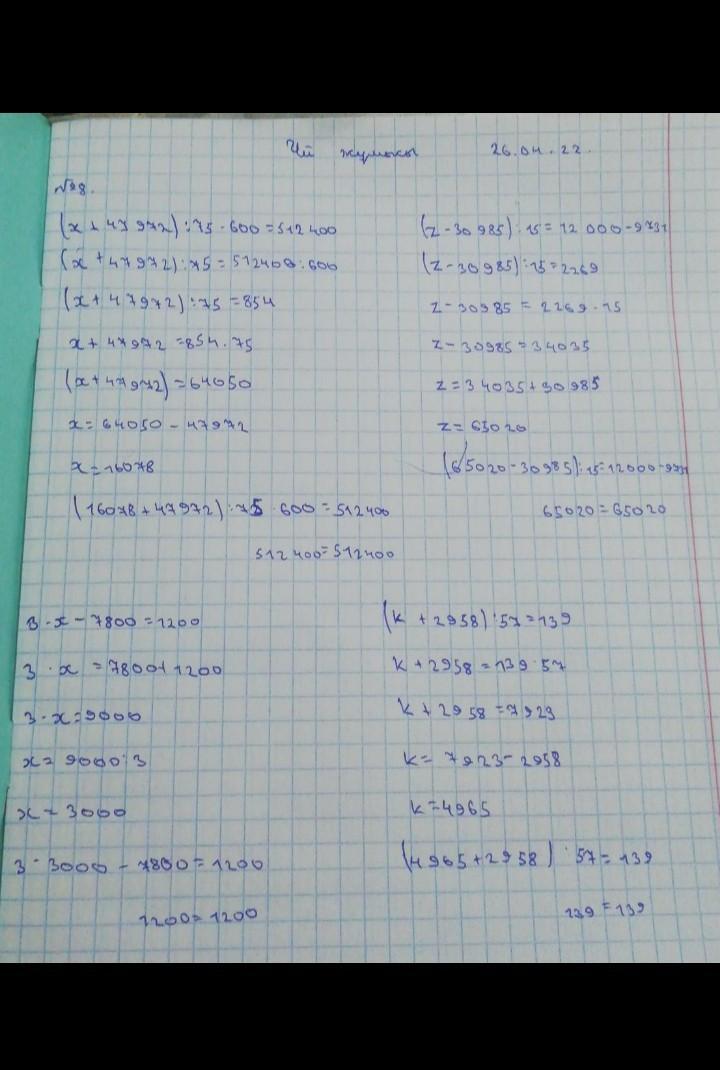 Үй жұмысы 26.04.22.
№8.
(x + 47972) : 75 · 600 = 512400
(x + 47972) : 75 = 512400 : 600
(x + 47972) : 75 = 854
x + 47972 = 854 · 75
(x + 47972) = 64050
x = 64050 - 47972
x = 16078
(16078 + 47972) : 75 · 600 = 512400
512400 = 512400
(z - 30985) : 15 = 12000 - 9731
(z - 30985) : 15 = 2269
z - 30985 = 2269 · 15
z - 30985 = 34035
z = 34035 + 30985
z = 65020
(65020 - 30985) : 15 = 12000 - 9731
65020 = 65020
3 · x - 7800 = 1200
3 · x = 7800 + 1200
3 · x = 9000
x = 9000 : 3
x = 3000
3 · 3000 - 7800 = 1200
1200 = 1200
(k + 2958) : 57 = 139
k + 2958 = 139 · 57
k + 2958 = 7923
k = 7923 - 2958
k = 4965
(4965 + 2958) : 57 = 139
139 = 139